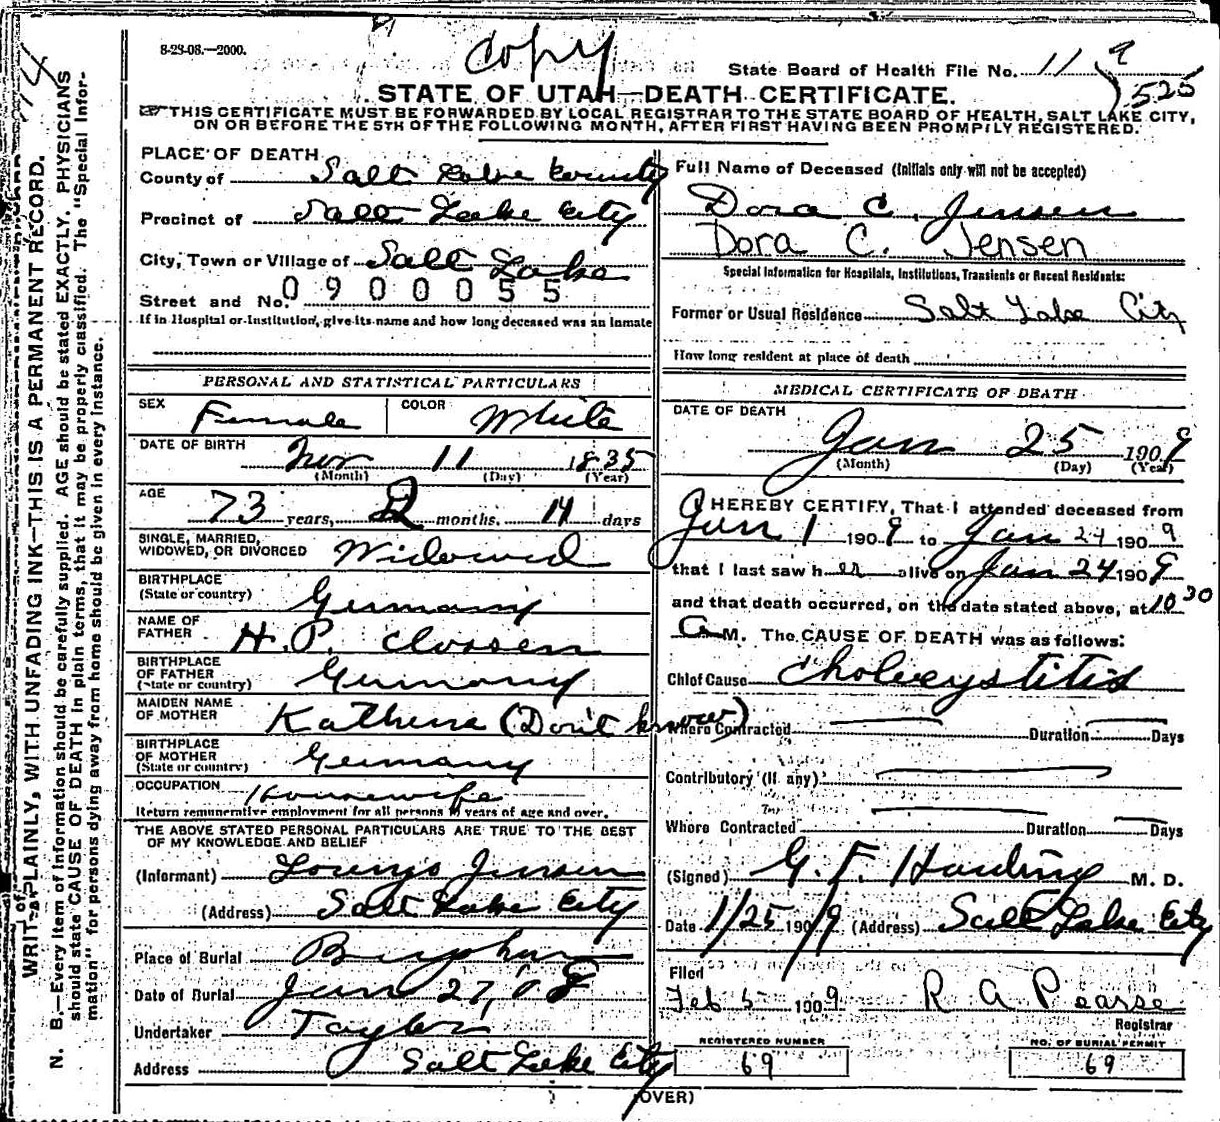 8-29-08.—2000.
Copy
State Board of Health File No. 11
525
STATE OF UTAH—DEATH CERTIFICATE.
THIS CERTIFICATE MUST BE FORWARDED BY LOCAL REGISTRAR TO THE STATE BOARD OF HEALTH, SALT LAKE CITY,
ON OR BEFORE THE 5TH OF THE FOLLOWING MONTH, AFTER FIRST HAVING BEEN PROMPTLY REGISTERED.
PLACE OF DEATH
County of Salt Lake County
Precinct of Salt Lake City
City, Town or Village of Salt Lake
Street and No. 0900055
If in Hospital or Institution, give its name and how long deceased was an inmate
PERSONAL AND STATISTICAL PARTICULARS
SEX Female COLOR White
DATE OF BIRTH Nov 11 1835
(Month) (Day) (Year)
AGE 73 years, 2 months, 14 days
SINGLE, MARRIED,
WIDOWED, OR DIVORCED Widowed
BIRTHPLACE
(State or country) Germany
NAME OF
FATHER H. P. Clossen
BIRTHPLACE
OF FATHER
(State or country) Germany
MAIDEN NAME
OF MOTHER Kathena (Don't know)
BIRTHPLACE
OF MOTHER
(State or country) Germany
OCCUPATION Housewife
Return remunerative employment for all persons 10 years of age and over.
THE ABOVE STATED PERSONAL PARTICULARS ARE TRUE TO THE BEST
OF MY KNOWLEDGE AND BELIEF
(Informant) Jensen
(Address) Salt Lake City
Place of Burial Brigham
Date of Burial Jan 27, 08
Undertaker Taylor
Address Salt Lake City
Full Name of Deceased (Initials only will not be accepted)
Dora C. Jensen
Dora C. Jensen
Special Information for Hospitals, Institutions, Transients or Recent Residents:
Former or Usual Residence Salt Lake City
How long resident at place of death
MEDICAL CERTIFICATE OF DEATH
DATE OF DEATH
Jan 25 1909
(Month) (Day) (Year)
I HEREBY CERTIFY, That I attended deceased from
Jan 1 1909 to Jan 24 1909
that I last saw her alive on Jan 24 1909
and that death occurred, on the date stated above, at 10 30
A M. The CAUSE OF DEATH was as follows:
Chief Cause Cholecystitis
Where Contracted Duration Days
Contributory (If any)
Where Contracted Duration Days
(Signed) G. F. Harding M. D.
Date 1/25 1909 (Address) Salt Lake City
Filed
Feb 5 1909 R A Pearse
Registrar
REGISTERED NUMBER
69
NO. OF BURIAL PERMIT
69
(OVER)
WRITE PLAINLY, WITH UNFADING INK—THIS IS A PERMANENT RECORD.
N. B.—Every item of information should be carefully supplied. AGE should be stated EXACTLY, PHYSICIANS
should state CAUSE OF DEATH in plain terms, that it may be properly classified. The "Special Infor-
mation" for persons dying away from home should be given in every instance.